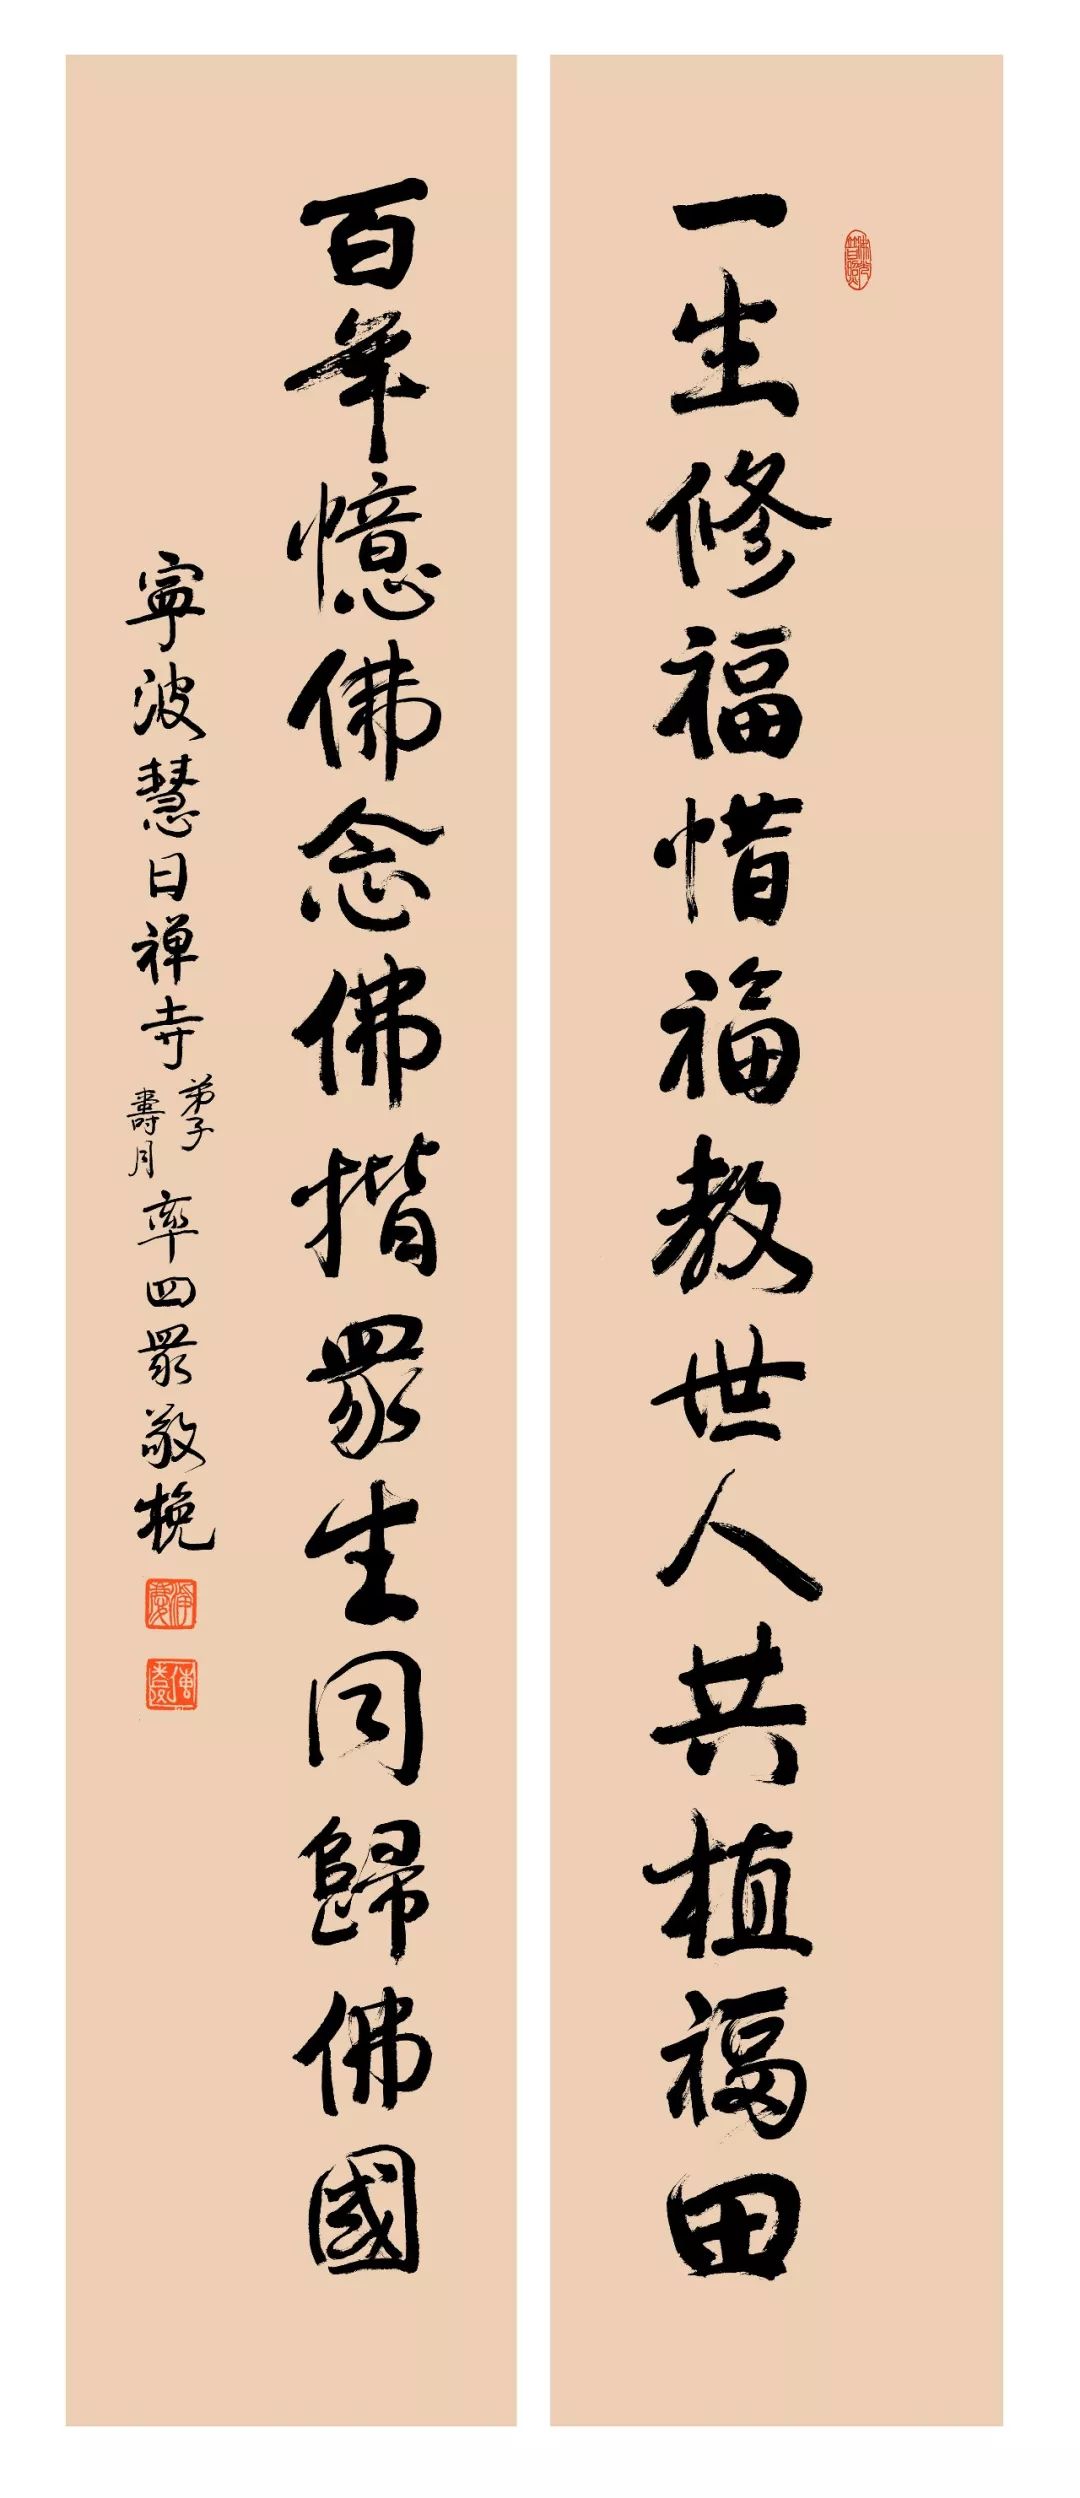 一生修福惜福教世人共植福田
百年憶佛念佛揩眾生同歸佛國
寧波慧日禅寺弟子壽月率四眾敬挽